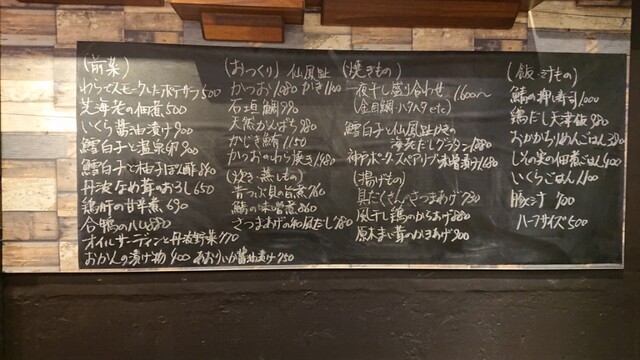 (前菜)
わらでスモークしたポテサラ500
芝海老の佃煮500
いくら醤油漬け900
鱈白子と温泉卵900
鱈白子と柚子ぽん酢840
丹波なめ茸のおろし650
鶏肝の甘辛煮690
合鴨のハム880
オイルサーディンと丹波野菜770
おかんの漬け物400 あおりいか醤油漬け750
(おつくり) 仙鳳趾
かつお1,080 かき1100
石垣鯛990
天然かんぱち980
かじき鮪1150
かつおのわら焼き1480
(炊き・蒸しもの)
青つぶ貝の旨煮960
鯖の味噌煮860
さつまあげの和風だし780
(焼きもの)
一夜干し盛り合わせ 1600〜
(金目鯛・ハタハタetc)
鱈白子と仙鳳趾かきの
海老だしグラタン1,080
神戸ポークスペアリブ味噌漬け1,680
(揚げもの)
具だくさんさつまあげ730
風干し鶏のからあげ880
原木まい茸のかきあげ900
(飯・すもの)
鯖の押し寿司1,000
鶏だし天津飯980
おかかちりめんごはん380
しその実の佃煮ごはん400
いくらごはん1,100
豚汁 700
ハーフサイズ500